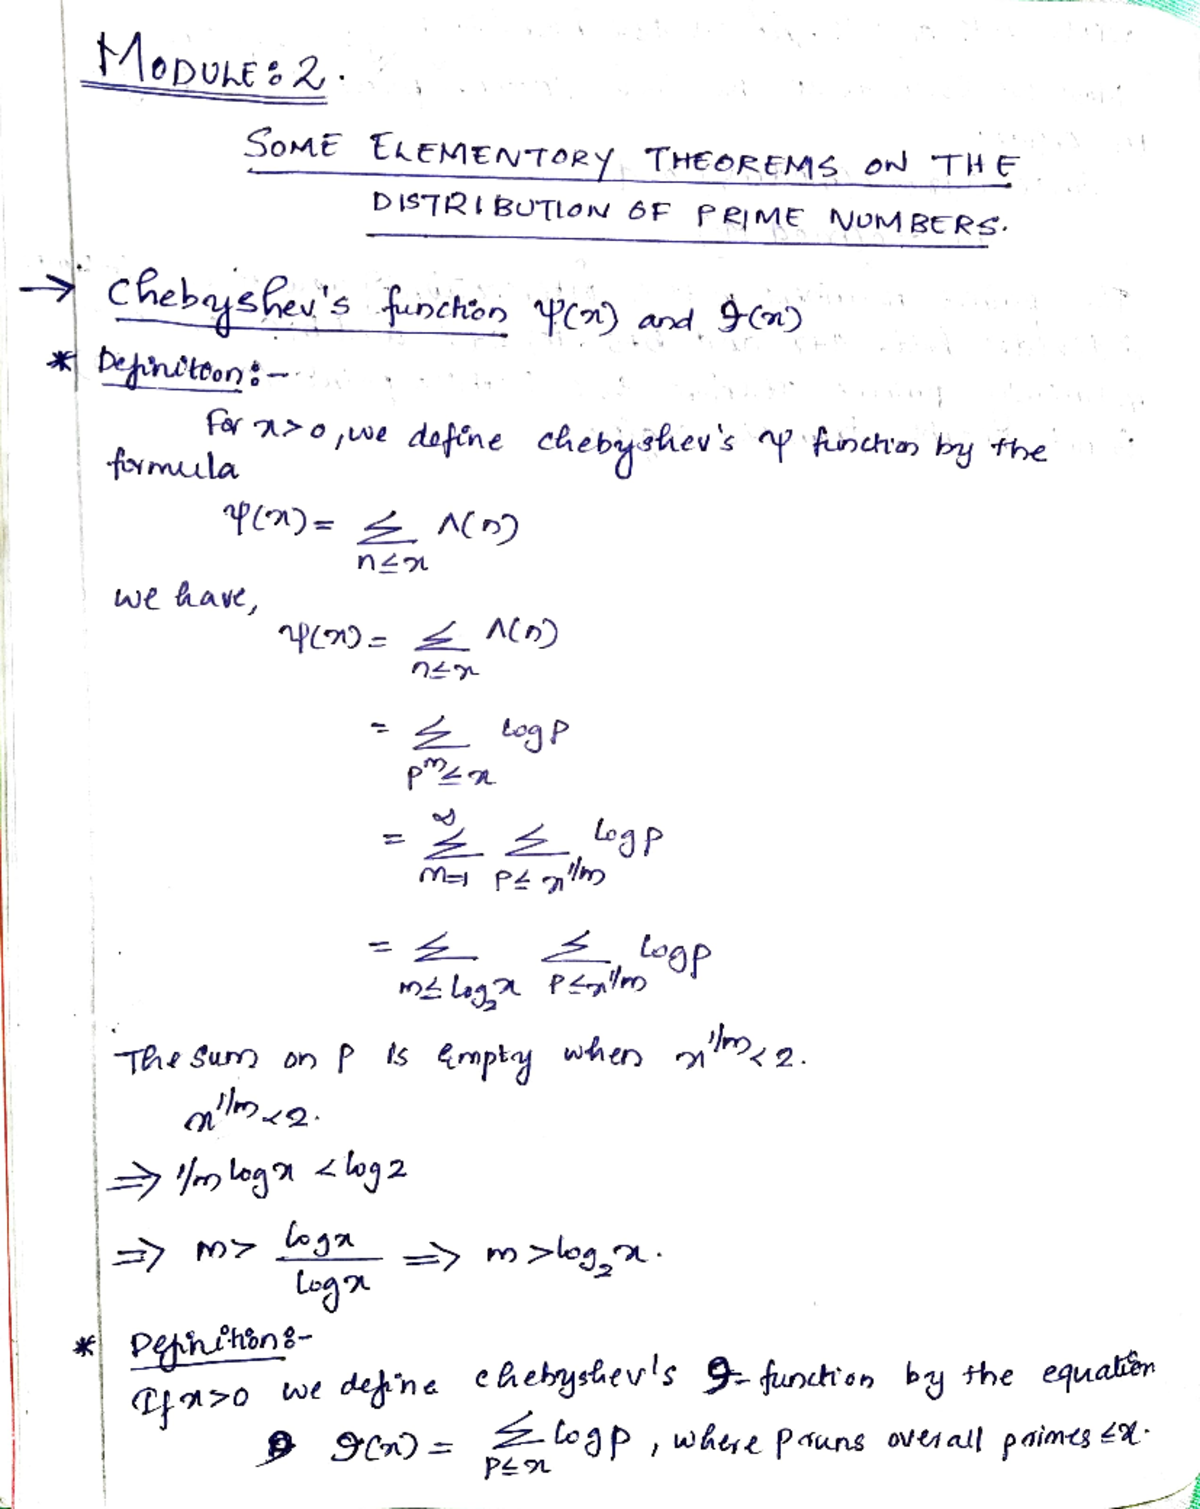 MODULE: 2.
SOME ELEMENTORY THEOREMS ON THE
DISTRIBUTION OF PRIME NUMBERS.
→ Chebyshev's function ψ(x) and ϑ(x)
* Definition:-
For x>0, we define chebyshev's ψ function by the
formula
ψ(x) = Σ_{n≤x} Λ(n)
we have,
ψ(x) = Σ_{n≤x} Λ(n)
= Σ_{p^m≤x} log p
= Σ_{m=1}^∞ Σ_{p≤x^{1/m}} log p
= Σ_{m≤log₂x} Σ_{p≤x^{1/m}} log p
The sum on p is empty when x^{1/m} < 2.
x^{1/m} < 2.
⇒ 1/m log x < log 2
⇒ m > log x / log x ⇒ m > log₂x.
* Definition:-
If x>0 we define chebyshev's ϑ- function by the equation
ϑ(x) = Σ_{p≤x} log p, where p runs over all primes ≤x.